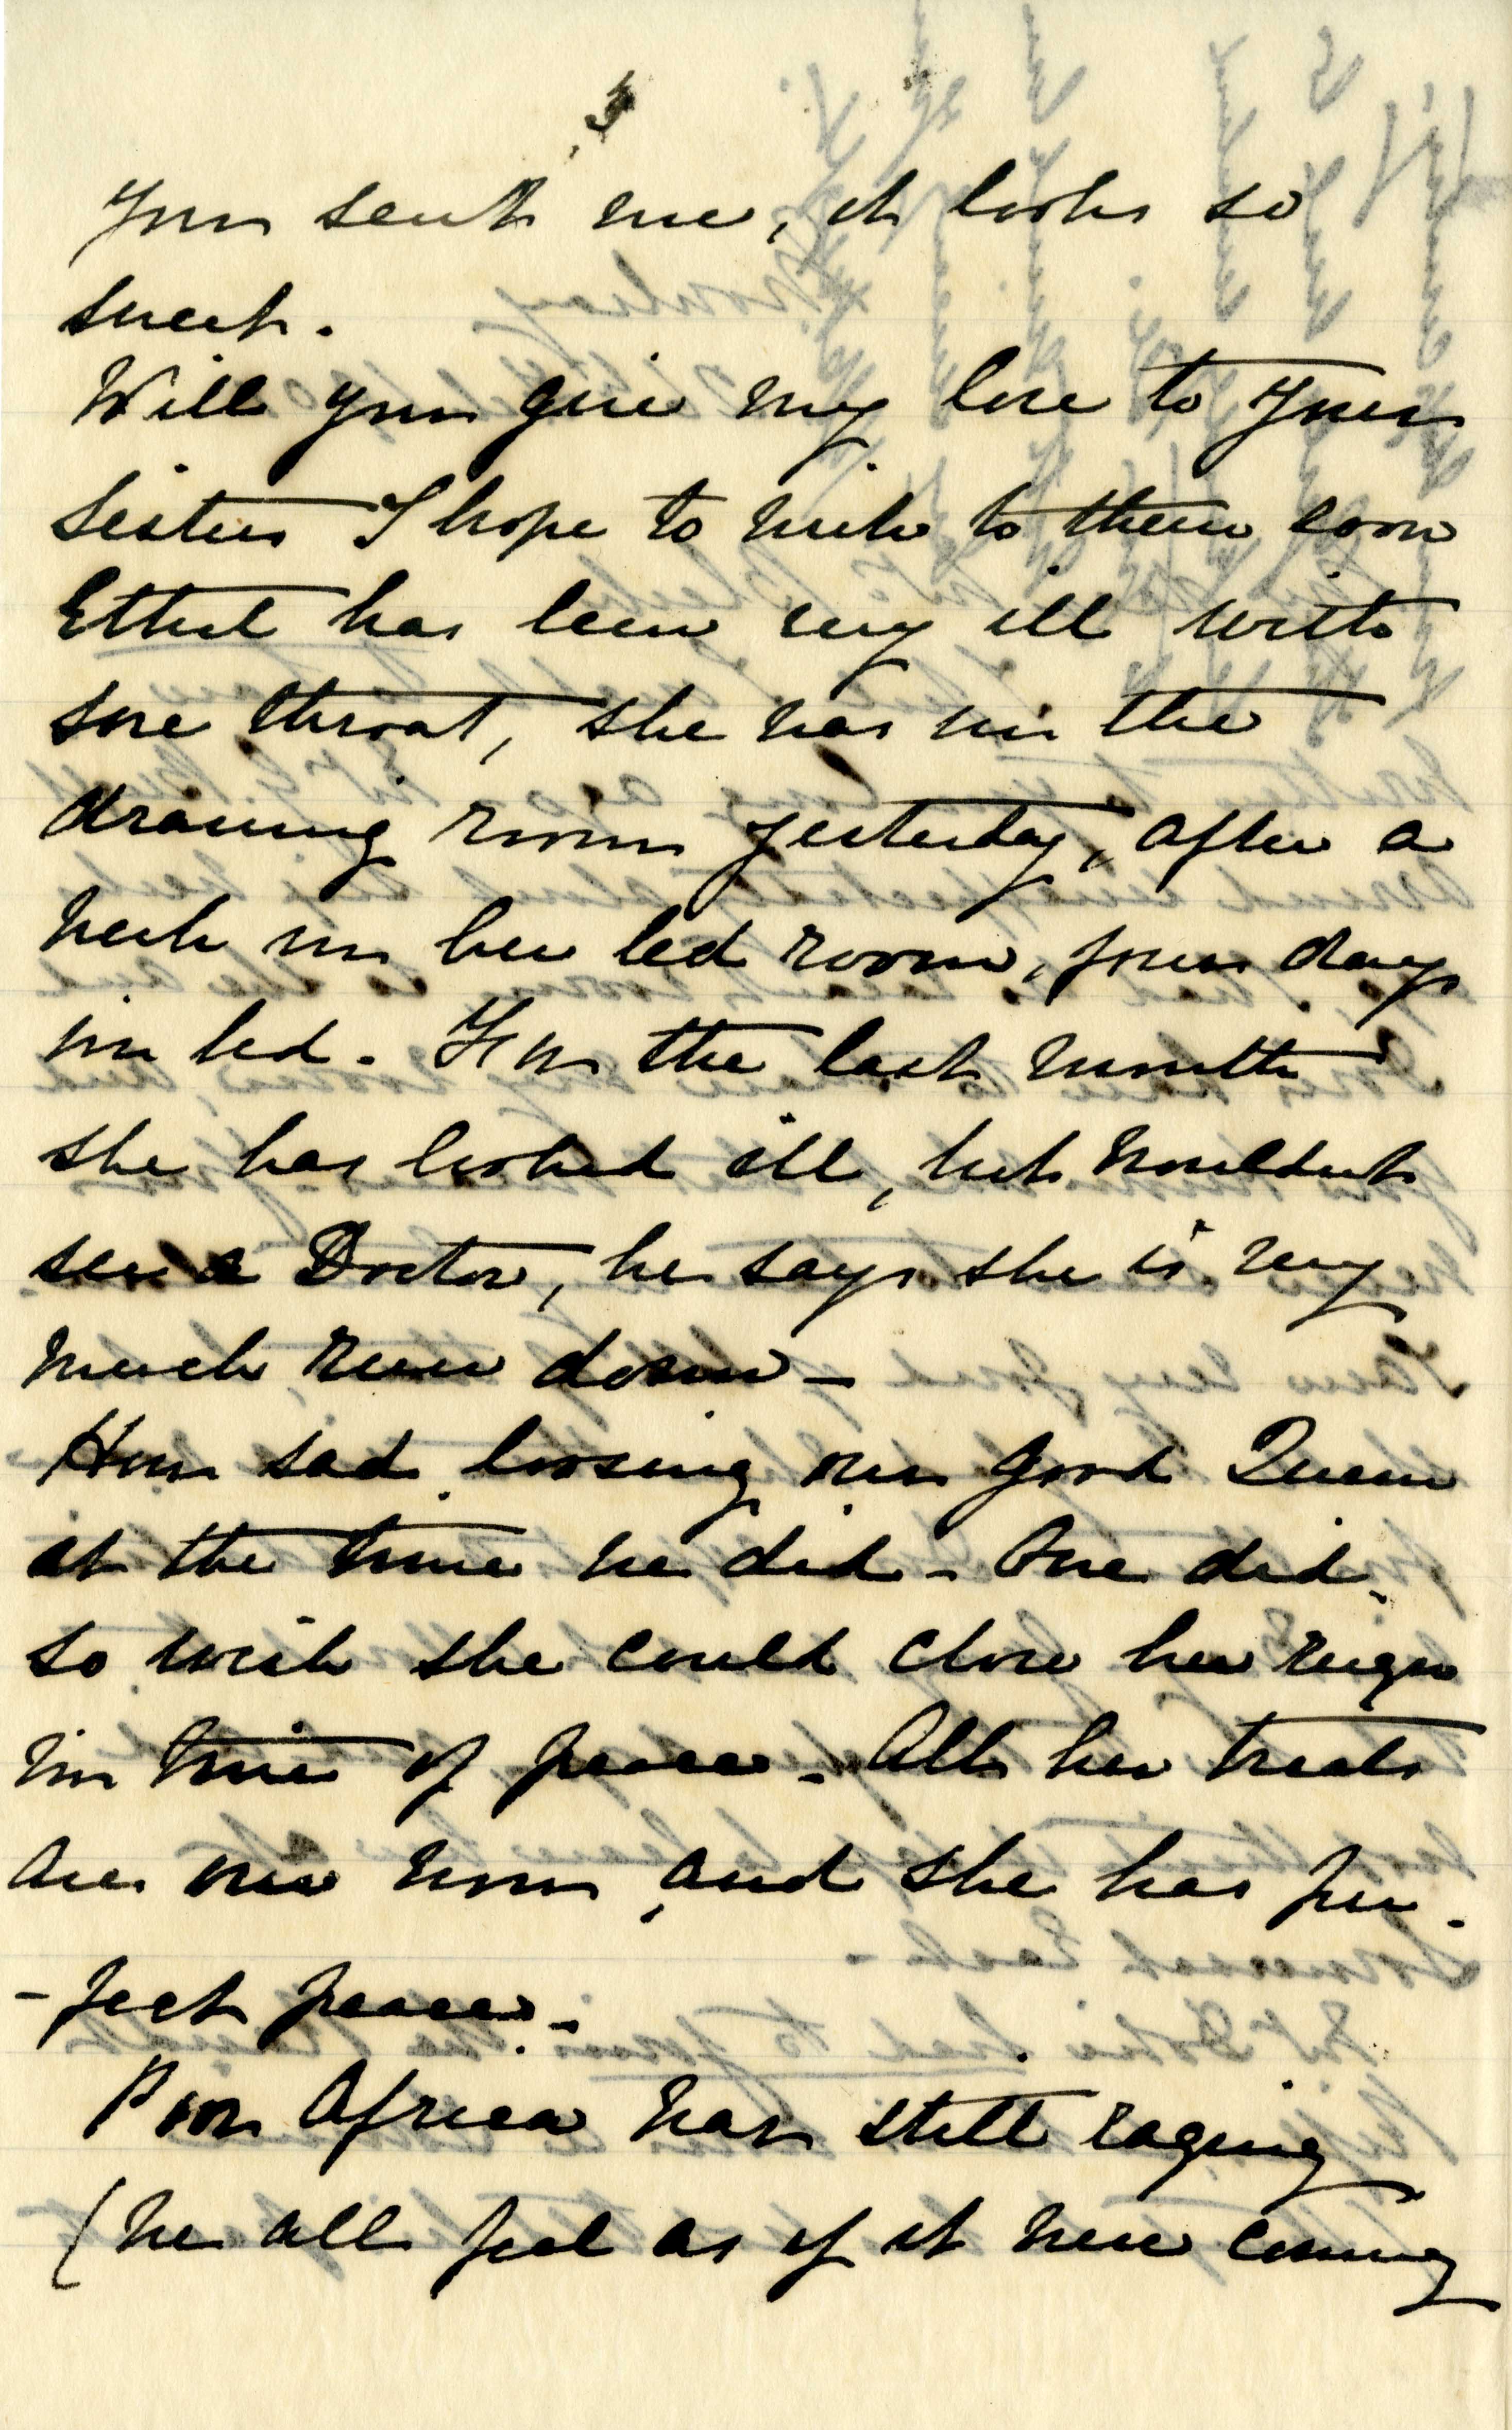 3
you sent me, it looks so
sweet.
Will you give my love to your
Sisters I hope to write to them soon
Ethel has been very ill with
sore throat, she was in the
drawing room yesterday, after a
week in her bed room, four days
in bed. For the last month
she has looked ill, but wouldnt
see a Doctor, he says she is very
much run down –
How sad loosing our good Queen
at the time we did – One did
so wish she could close her reign
in time of peace – All her trials
are over now, and she has per-
-fect peace –
Poor Africa war still raging
(we all feel as if it were coming